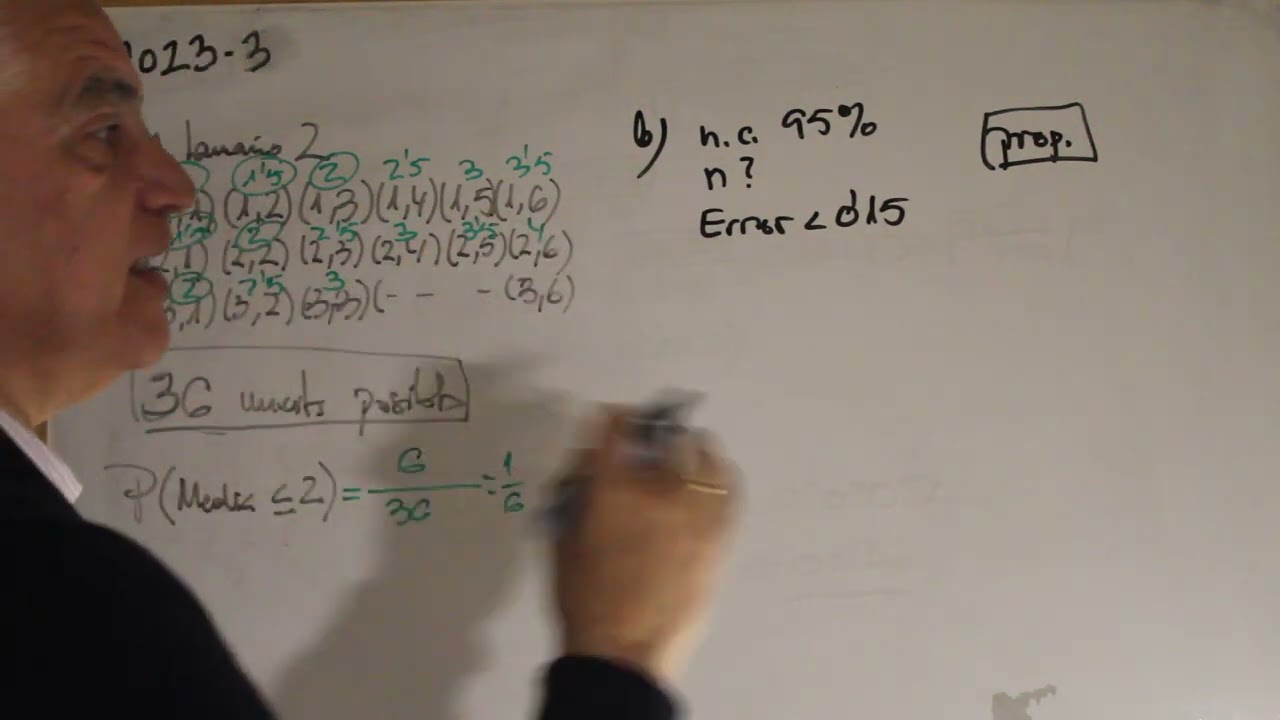 2023-3
tamaño 2
1'5 2 2'5 3 3'5
(1,2) (1,3) (1,4) (1,5) (1,6)
2 2'5 3 3'5 4
(2,2) (2,3) (2,4) (2,5) (2,6)
2 2'5 3
(3,2) (3,3) (- - - (3,6)
36 posibles
P(Media ≤ 2) = 6/36 = 1/6
b) n.c. 95%
n?
Error < 0'15
prop.